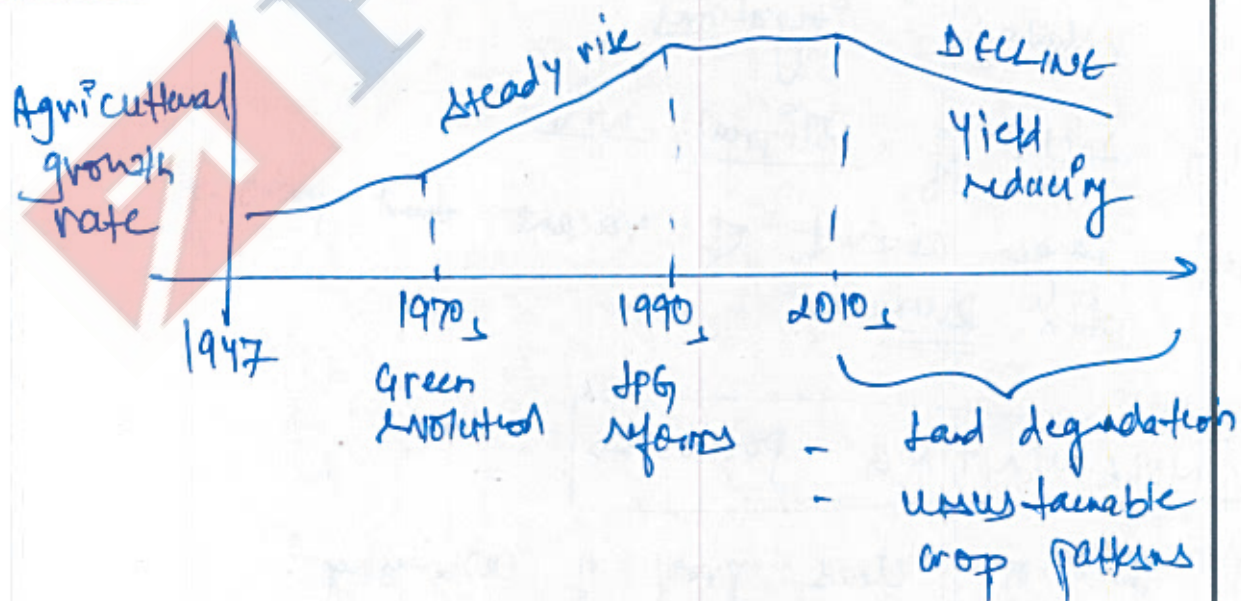 Agricultural
growth
rate
steady rise
DECLINE
Yield
reducing
1947
1970s
1990s
2010s
Green
revolution
LPG
reforms
- Land degradation
- unsustainable
crop patterns